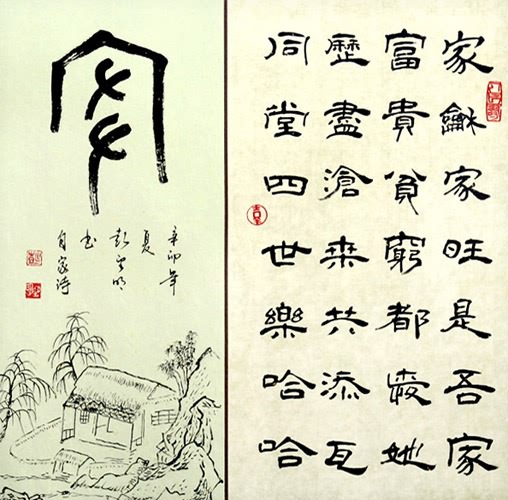 家龢家旺是吾家
富貴貧窮都愛她
歷盡滄桒共添瓦
同堂四世樂哈哈
家
辛卯年
夏
彭云明
书
自家诗